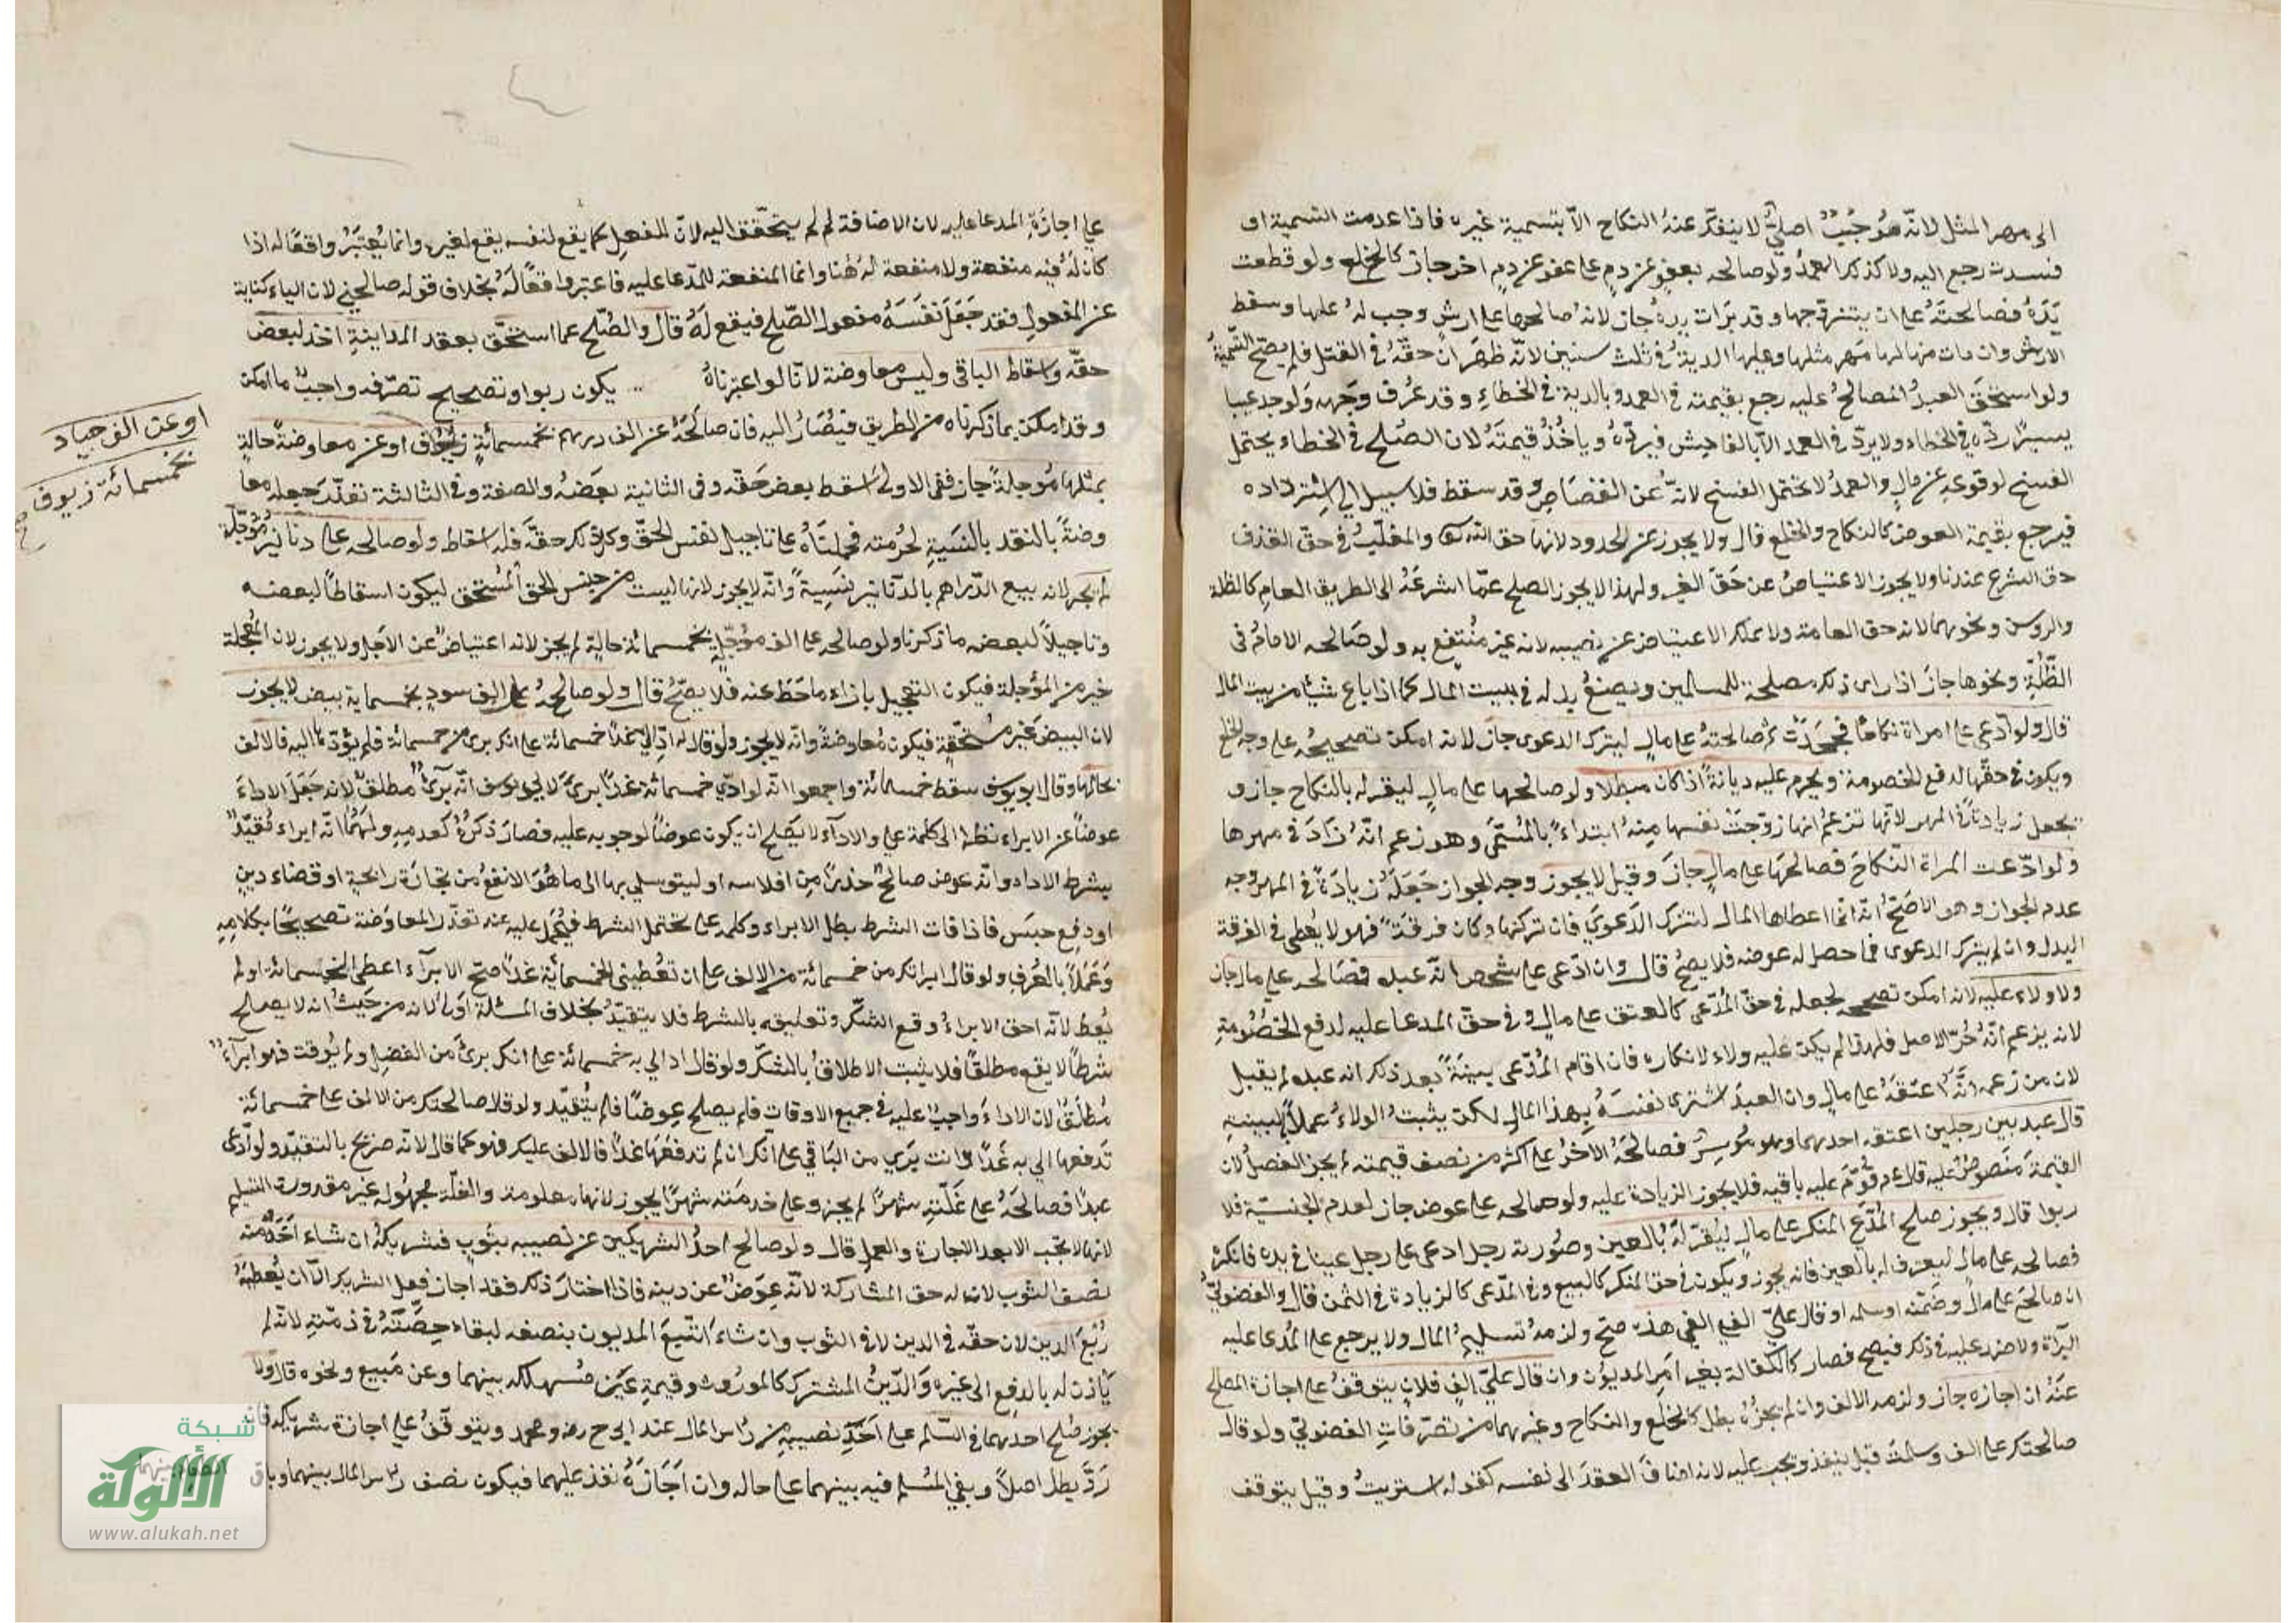 الى مهر المثل لانّه مُوجَبٌ اصليٌّ لا ينفكّ عنهُ النكاح الاّ بتسمية غيره فاذا عدمت التسمية او
فسدت رجع اليه ولا كذلك العمدُ ولو صالحه بعفوٍ عن دمٍ على عفو عن دمٍ اخر جاز كالخلع ولو قطعت
يَدَهُ فصالحتهُ على ان يتزوّجها وقد برَات يدهُ جاز لانهُ صالحها على ارشٍ وجب لهُ عليها وسقط
الارش وان مات منها لها مَهر مثلها وعليها الديةُ في ثلث سنين لانّه ظهَرَ انّ حقّهُ في القتل فلم يصحّ التسميةُ
ولو استحقّ العبدُ المصالحُ عليه رجع بقيمته في العمد وبالدية في الخطاءِ وقد عُرف وَجهه وَلو وجد عيبا
يسيرًا ردّه في الخطاء ولا يردّ في العمد الاّ بالفاحِش فيردّهُ وياخُذُ قيمتَهُ لان الصُلح في الخطاء يحتمل
الفسخ لوقوعهِ عن مالٍ والعمدُ لا يحتمل الفسخ لانهُ عن القصَاصِ وقد سقط فلا سبيل الى استرداده
فيرجع بقيمة العوض كالنكاح والخلع قال ولا يجوز عن الحدود لانها حق الله تعالى والمغلّبُ في حقّ القذف
حق الشرع عندنا ولا يجوز الاعتياضُ عن حَقّ الغير ولهذا لا يجوز الصلح عمّا اشرعَهُ الى الطريق العامِ كالظلة
والروسن ونحوهما لانه حق العامة ولا يملك الاعتياض عن نصيبه لانه غير مُنتفع به ولو صَالحه الامامُ في
الظُّلَّةِ ونحوها جازَ اذا راى ذلك مصلحة للمسلمين ويصنعُ بدله في بيت المال كما اذا باع شيًا من بيت المال
قال ولو ادّعى على امراة نكاحًا فجحَدَتْ ثم صَالحتهُ على مالٍ ليترك الدعوى جاز لانه امكن تصحيحُه على وجه الخلع
ويكون في حقّها لدفع الخصومة ويحرم عليه ديانةً اذا كان مبطلا ولو صالحها على مالٍ ليقرّ له بالنكاح جاز و
يجعل زيادةً في المهر لانّها تزعمُ انها زوّجَتْ نفسها مِنهُ ابتداءً بالمُسَمَّى وهو زعم انّهُ زَادَ في مهرها
ولو ادّعت المراة النّكاحَ فصالحهَا على مالٍ جازَ وقيل لا يجوز وجه الجواز جَعَلهُ زيادَةً في المهر وجه
عدم الجواز وهو الاصَحّ انّه انّما اعطاها المال لتترك الدَعوىَ فان تركتها وكان فرقةً فهو لا يُعطى في الفرقة
البدل وان لم يترك الدعوى فما حصل له عوضه فلا يصحُ قال وان ادّعى على شخص انّه عبده فصَالحه على مال جاز
ولا ولاء عليه لانه امكن تصحيحه لجعله في حقّ المُدّعى كالعتق على مالٍ وفي حقّ المدعا عليه لدفع الخصُومةِ
لانه يزعم انّهُ حُرّ الاصل فلهذا لم يكن عليه ولاء لانكاره فان اقام المُدّعى بينةً بعد ذلك انه عبده لم يقبل
لان من زعمه انَّهُ اعتقَهُ على مالٍ وان العبدَ اشترى نفسَهُ بهذا المال لكن يثبتُ الولاءُ عملاً بالبينةِ
قال عبد بين رجلين اعتقه احدهما وهو مُوسِرٌ فصالحَهُ الاخرُ على اكثر من نصف قيمته لم يجز الفضلُ لان
القيمةَ مَنصوصٌ عليه قال عم قُوّمَ عليه باقيه فلا يجوز الزيادة عليه ولو صالحه على عوض جاز لعدم الجنسيّة فلا
ربوا قال ويجوز صلح المُدّعِ المنكرَ على مالٍ ليُقرّ لهُ بالعين وصُورته رجل ادعى على رجل عينا في يده فانكرَ
فصالحه على مال ليعترف له بالعين فانه يجوز ويكون في حق المنكر كالبيع وفي المدّعى كالزيادة في الثمن قال والفضوليّ
ان صالحَ على مالٍ وضَمّنه او سلمه او قال عليّ الفي الفي هذه صحّ ولزمهُ تسليمُ المال ولا يرجع على المُدعا عليه
البرآة ولا ضرر عليه في ذلك فيصح فصار كالكفالة بغير امر المديُون وان قال عليّ الفٍ فلانٍ يتوقفُ على اجازة المصالح
عنهُ ان اجازه جاز ولزمه الالف وان لم يجزهُ بطل كالخلع والنكاح وغيرهما من تصرّفاتِ الفضوليّ ولو قال
صالحتك على الف وسلمتُ قيل ينفذ ويجب عليه لانه اضاف العقدَ الى نفسه كقوله اشتريتُ وقيل يتوقف
على اجازَةِ المدعا عليه لان الاضافة لم يتحقّق اليه لانّ الفعل كما يقع لنفسه يقع لغيره وانما يُعتبَرُ واقعًا له اذا
كان لهُ فيه منفعة ولا منفعة لهُ هُنا وانما المنفعة للمدّعا عليه فاعتبر واقعًا لَهُ بخلاف قوله صالحنِي لان الياء كناية
عن المفعول فقد جَعَلَ نَفسَهُ مفعول الصّلح فيقع لهُ قال والصُلح عما استحقّ بعقد المداينةِ اخذ لبعض
حقّه واسقاط الباقى وليس معاوضة لانّا لو اعتبرناهُ يكون ربوا وتصحيح تصرّفه واجبٌ ما امكن
وقد امكن بما ذكرناه من الطريق فيُصَارُ اليه فان صالَحَهُ عن الف درهم بخمسمائةٍ زيُوف او عن معاوضة حالةٍ
بمثلها مُوجلةً جاز ففى الاولى اسقط بعض حَقّه وفى الثانية بعضهُ والصفة وفي الثالثة تعذّر جعله معا
وضةً بالنقد بالنّسَيةِ لحُرمته فحملناهُ على تاجيل لنفس الحقّ وكل ذلك حقّه فله اسقاط ولو صالحه على دنانير مُؤجّلةٍ
لم يجز لانه بيع الدّراهم بالدّنانير بنَسِيةً وانّه لا يجوز لانها ليست من جنس الحق المُستحق ليكون اسقاطاً لبعضه
وتاجيلاً لبعضه ما ذكرنا ولو صالحه على الف مؤجّلٍ بخمسمائة حالةٍ لم يجز لانه اعتياضٌ عن الاجل ولا يجوز لان المُعجلة
خير من المؤجلة فيكون التعجيل بازاء ما حَطّ عنه فلا يصحّ قال ولو صالحهُ على الف سودٍ بخمسماية بيض لا يجوز
لان البيض غير مستحَقّةٍ فيكون مُعاوضةً وانّه لا يجوز ولو قال له ادِّ اليّ غدًا خمسمائة على انك برى من خمسمائة فلم يؤدّها اليه فالالف
بحالها وقال ابو يوسف سقط خمسمائة واجمعوا انّه لو ادّى خمسمائة غدًا برئ لابى يوسف انّه برئٌ مطلقٌ لانه جَعَلَ الاداءَ
عوضاً عن الابراء نظرًا الى كلمة على والادآء لا يَصلح ان يكون عوضًا لوجوبه عليه فصار ذكرُهُ كعدمِهِ ولهُمَا انّه ابراء مُقيّدٌ
بشرط الادا وانّه عوض صالحٌ حذرًا مِن افلاسه او ليتوسل بها الى ما هُوَ الانفعُ من تجارَةٍ رابحةٍ او قضاء دينٍ
او دفع حبسٍ فاذا فات الشرط بطل الابراء وكلمة على تحتمل الشرط فيُحمَل عليه عند تعذّر المعاوَضة تصحيحًا بكلامِهِ
وَعَملاً بالعُرفِ ولو قال ابراتك من خمسمائة من الالف على ان تُعطينى الخمسمائة غدًا صحّ الابرآء اعطى الخمسمائة او لم
يُعطِ لانّه احق الابراءُ وقع الشكّ وتعليقه بالشرط فلا يتقيّدُ بخلاف المسئلة اولى لانه من حَيثُ انه لا يصلح
شرطًا لا يقع مطلقًا فلا يثبت الاطلاقُ بالشكّ ولو قال ادّ اليّ به خمسمائة على انك برئ من الفضلِ ولم يُوقت فهو ابرآءٌ
مُطلَقٌ لان الاداءَ واجبٌ عليه في جميع الاوقات فلم يصلح عِوضًا فلم يتقيّد ولو قال صالحتك من الالف على خمسمائة
تدفعها الي به غدًا وانت بَري من البَاقي على انّك ان لم تدفعها غدًا فالالف عليك فهو كما قال لانّه صرح بالتقيّد ولو ادّى
عبدًا فصالحَهُ على غلّتهِ شهرًا لم يجز وعلى خدمته شهرًا يجوز لانها معلومة والغلّة مجهُولة غير مقدورة التسليم
لانها لا تجب الا بعد الاجارة والعمل قال ولو صالح احدُ الشريكين عن نصيبه بثوبٍ فشريكهُ ان شاء اخَذَ منه
نصف الثوب لانه له حق المشاركة لانّه عِوَضٌ عن دينه فاذا اختارَ ذلك فقد اجاز فعل الشريك الاّ ان يُعطيهُ
رُبعَ الدين لان حقّه في الدين لا في الثوب وان شاءَ اتّبعَ المديون بنصفه لبقاء حِصَّتهُ في ذمّتهِ لانّه لم
يَأذن له بالدفع الى غيره وَالدّينُ المشترك كالمورُوث وقيمةِ عَين مُستهلكه بينهما وعن مَبيع ونحوه قال ولا
يجوز صُلح احدهما في السّلم على اخَذِ نصيبه من رأس المال عند ابى ح رضه ومحمد ويتوقّفُ على اجازة شريكه فان
رَدَّ بطل اصلاً وبقي المُسلم فيه بينهما على حاله وان اجَازَهُ نفذ عليهما فيكون نصف راس المال بينهما وباقى
او عن الف جياد
بخمسمائة زيوف
صح
شبكة
الألوكة
www.alukah.net